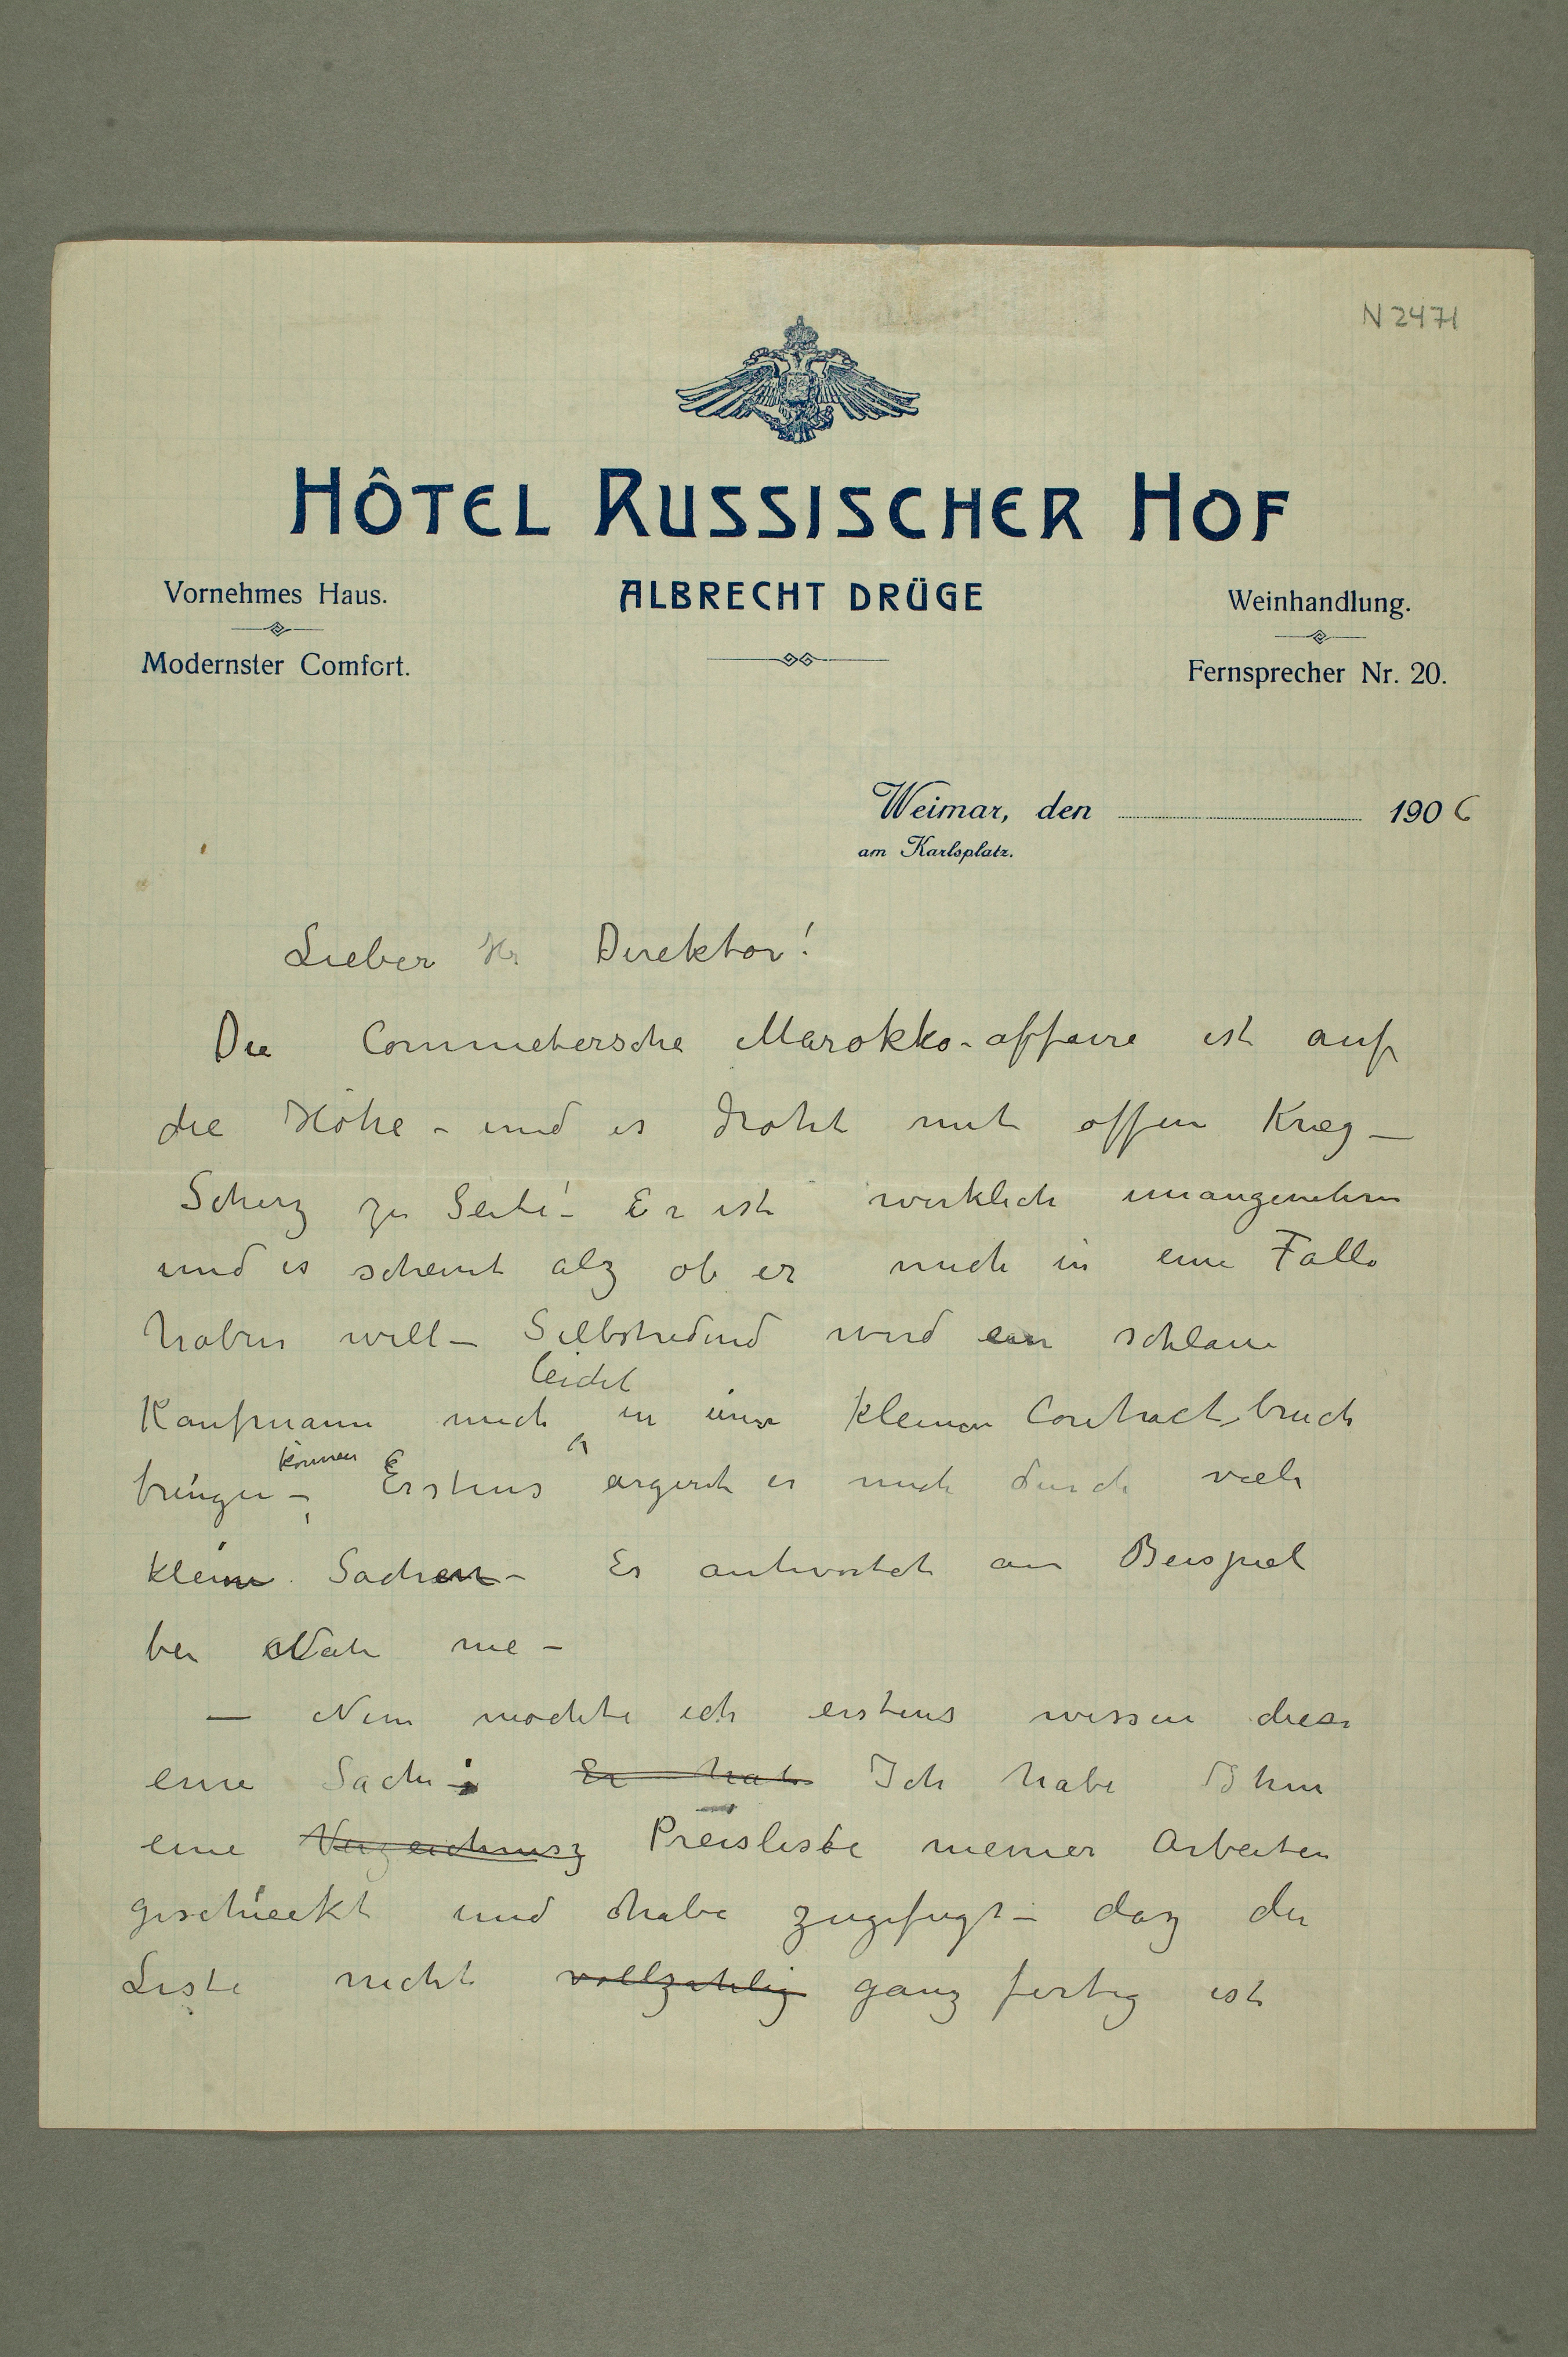 N 2471
HÔTEL RUSSISCHER HOF
ALBRECHT DRÜGE
Vornehmes Haus.
Modernster Comfort.
Weinhandlung.
Fernsprecher Nr. 20.
Weimar, den 1906
am Karlsplatz.
Lieber Hr Direktor!
Die Commetersche Marokko-affaire ist auf
die Höhe – und es droht mit offen Krieg –
Scherz zu Seite! – Er ist wirklich unangenehm
und es scheint alz ob er mich in eine Falle
haben will – Selbstredend wird ein schlaue
leicht
Kaufmann mich in einen kleinen Contractbruch
können
bringen – Erstens ärgert er mich durch viele
kleine Sachen – Er antwortet am Beispiel
bei Nahe nie –
– Nun mochte ich erstens wissen diese
eine Sache: Er hat Ich habe Ihm
eine Verzeichnisz Preisliste meiner Arbeiten
geschieckt und habe zugefugt – daz die
Liste nicht vollzahlig ganz fertig ist